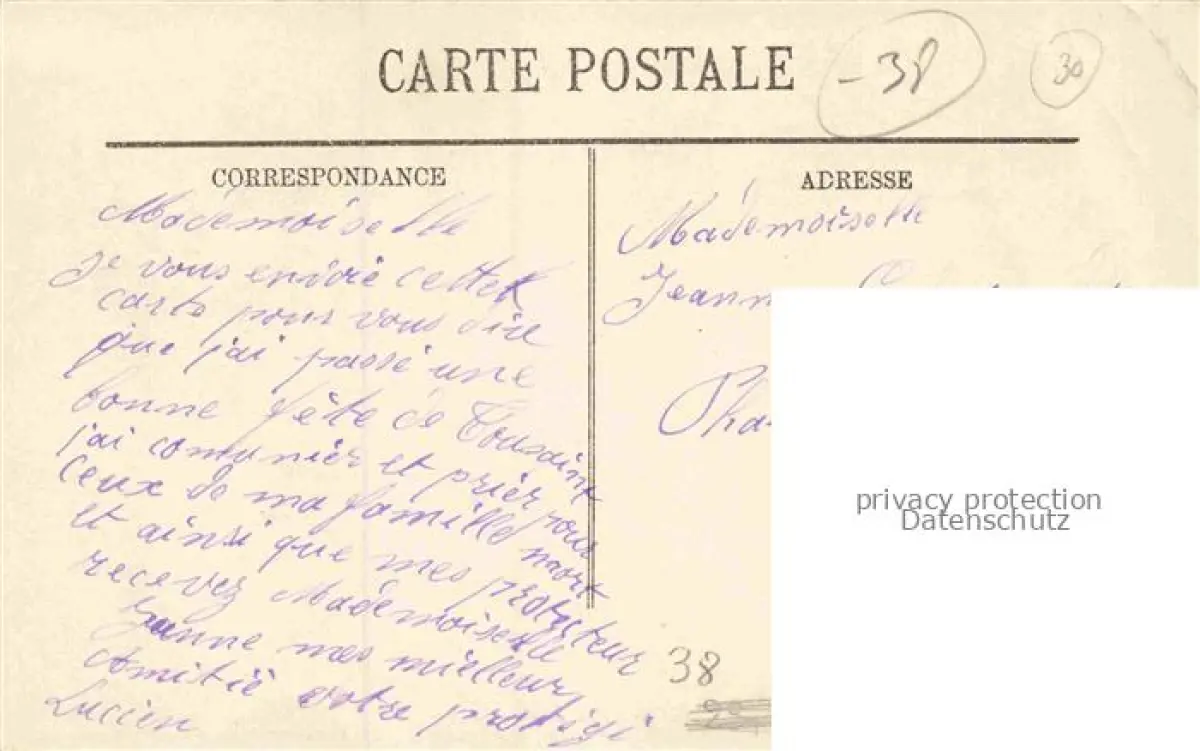 CARTE POSTALE
-38
30
CORRESPONDANCE
Mademoiselle
je vous envoie cette
carte pour vous dire
que j'ai passé une
bonne fête de Tousaint
j'ai comunier et prier pour
ceux de ma famille mort
et ainsi que mes protecteur
recevez Mademoiselle
Jeanne mes mielleur
Amitié votre protégé
Lucien
ADRESSE
Mademoiselle
privacy protection
Datenschutz
38